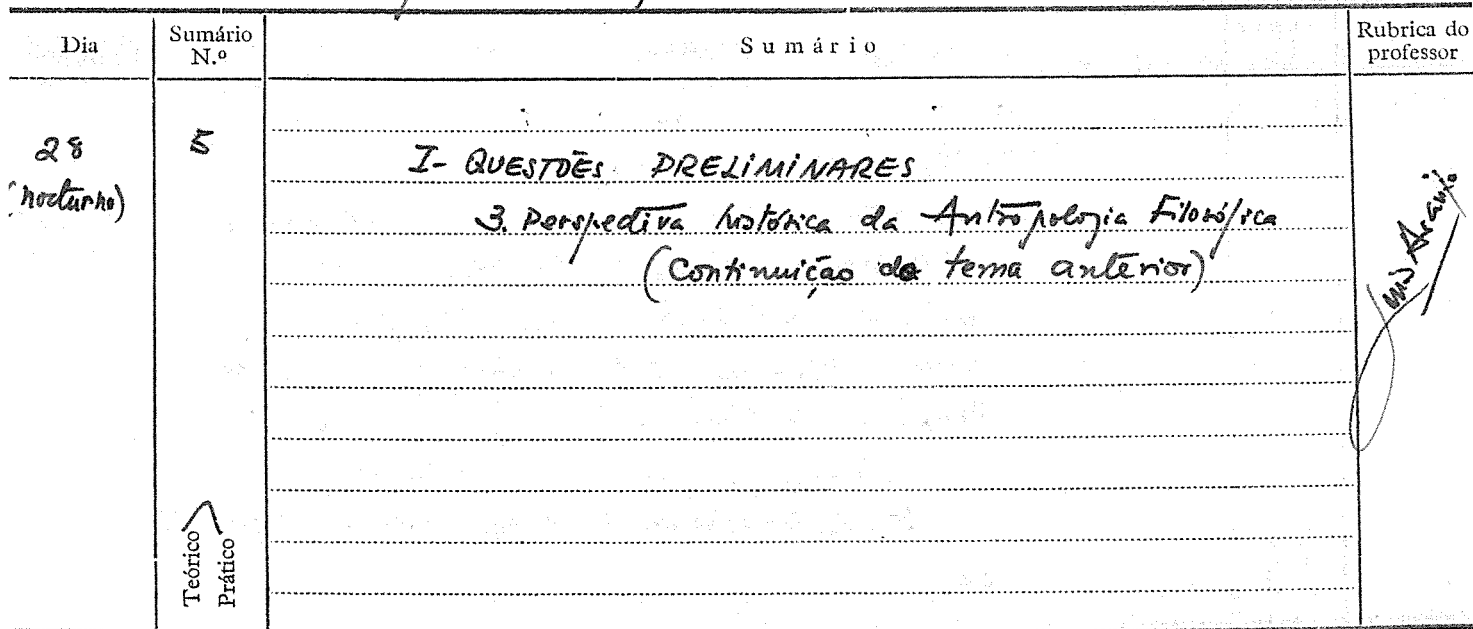 Dia
Sumário N.º
Sumário
Rubrica do professor
28
(nocturno)
5
I- QUESTÕES PRELIMINARES
3. Perspectiva histórica da Antropologia Filosófica
(Continuição do tema anterior)
Araújo
Teórico
Prático